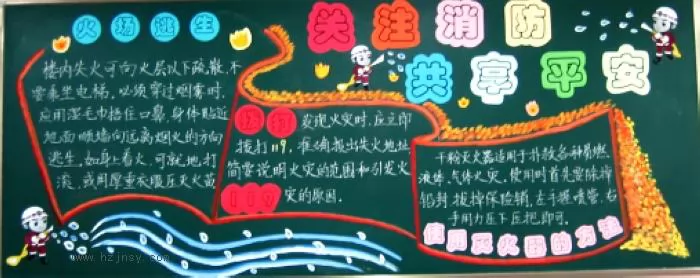 火场逃生
关注消防
共享平安
楼内失火可向火层以下疏散,不
要乘坐电梯,必须穿过烟雾时,
应用湿毛巾捂住口鼻,身体贴近
地面顺墙向远离烟火的方向
逃生,如身上着火,可就地打
滚,或用厚重衣服压灭火苗
发现火灾时,应立即
拨打119,准确报出失火地址
简要说明火灾的范围和引发火
灾的原因.
119
干粉灭火器适用于扑救各种易燃
液体,气体火灾,使用时首先要除掉
铅封,拔掉保险销,左手握喷管,右
手用力压下压把即可.
使用灭火器的方法
www.hzjnsy.com